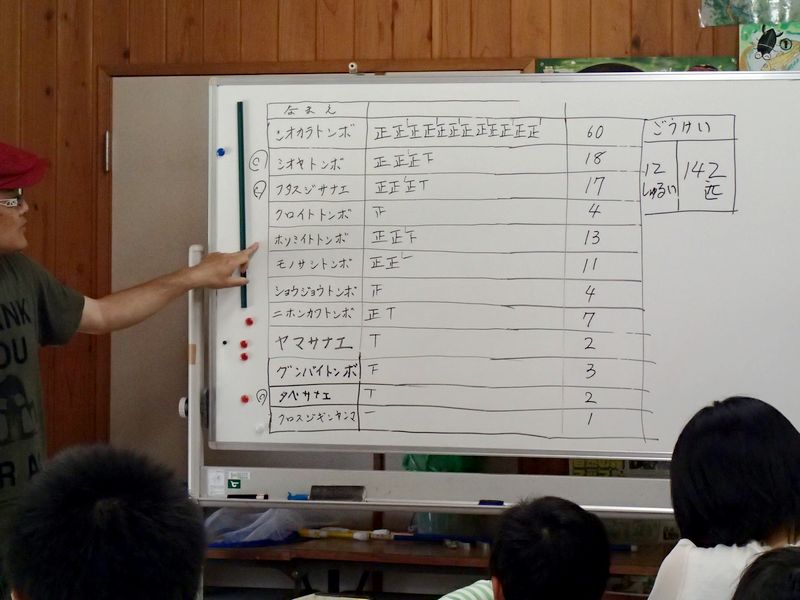 なまえ
シオカラトンボ 正正正正正正正正正正正正 60
シオヤトンボ 正正正下 18
フタスジサナエ 正正正丅 17
クロイトトンボ 4
ホソミイトトンボ 正正下 13
モノサシトンボ 正正一 11
ショウジョウトンボ 4
ニホンカワトンボ 正丅 7
ヤマサナエ 丅 2
グンバイトンボ 下 3
タベサナエ 丅 2
クロスジギンヤンマ 一 1
ごうけい
12 しゅるい 142 匹